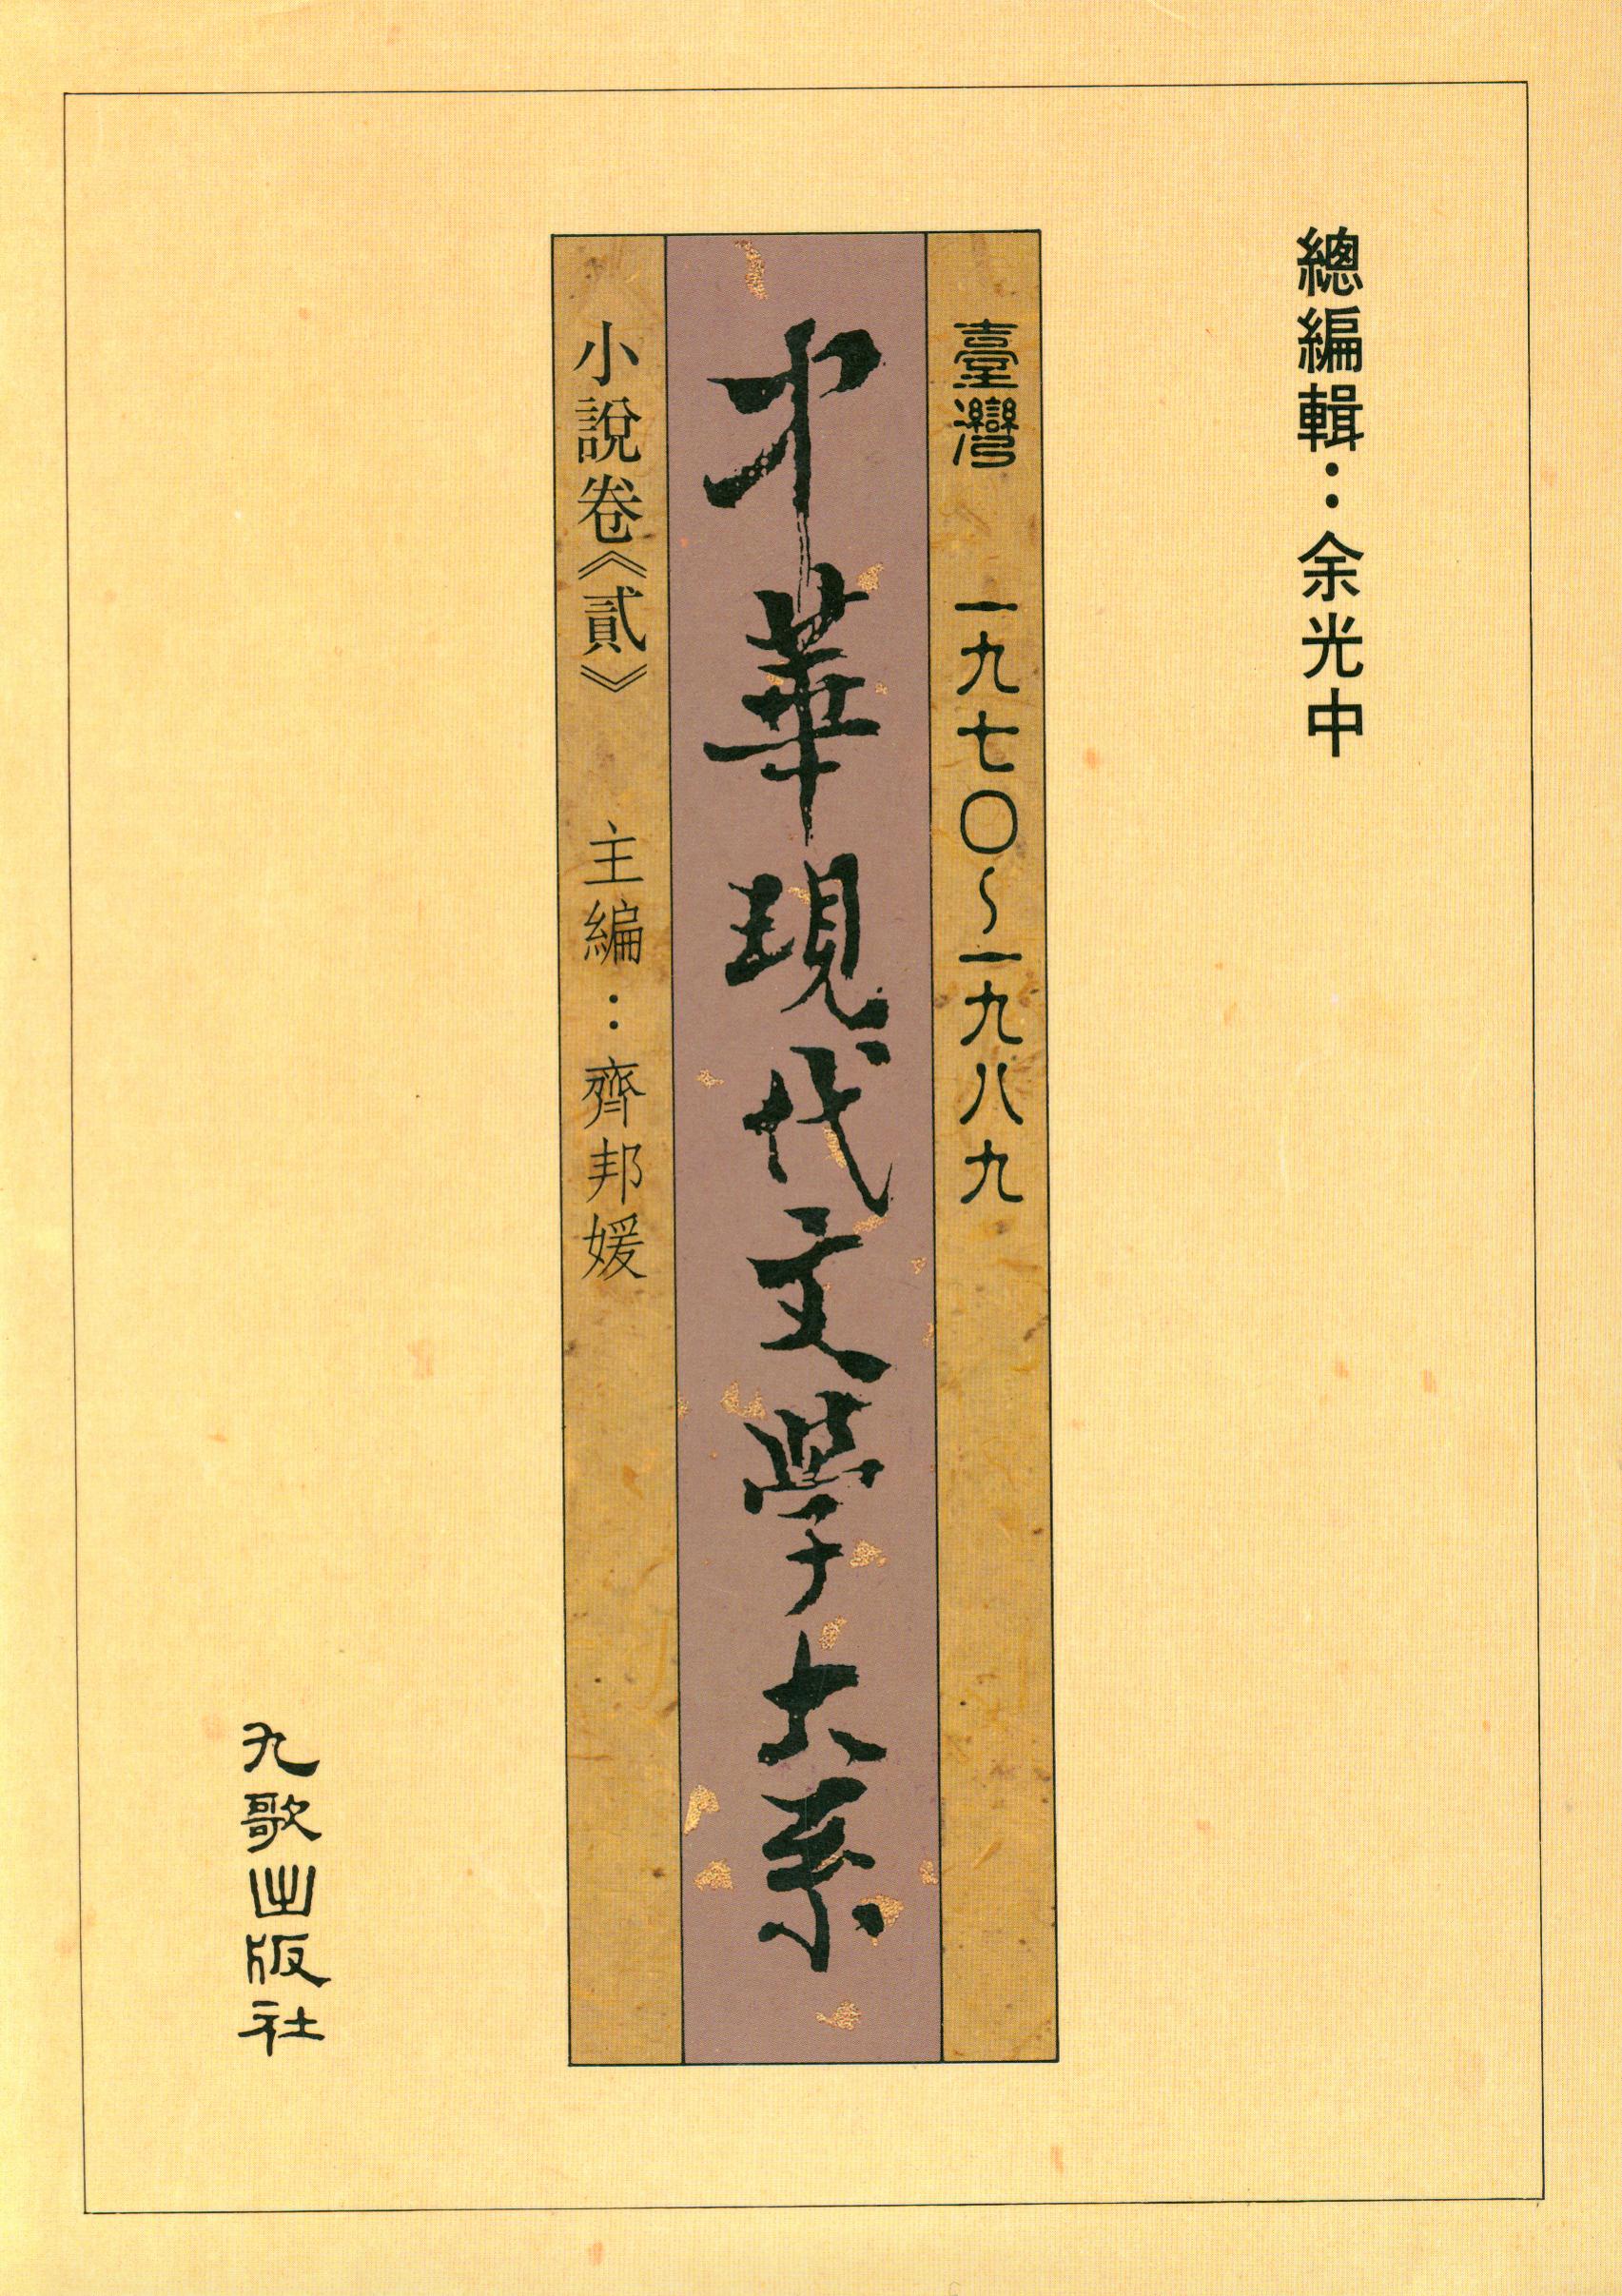 總編輯：余光中
臺灣 一九七〇～一九八九
中華現代文學大系
小說卷《貳》 主編：齊邦媛
九歌出版社